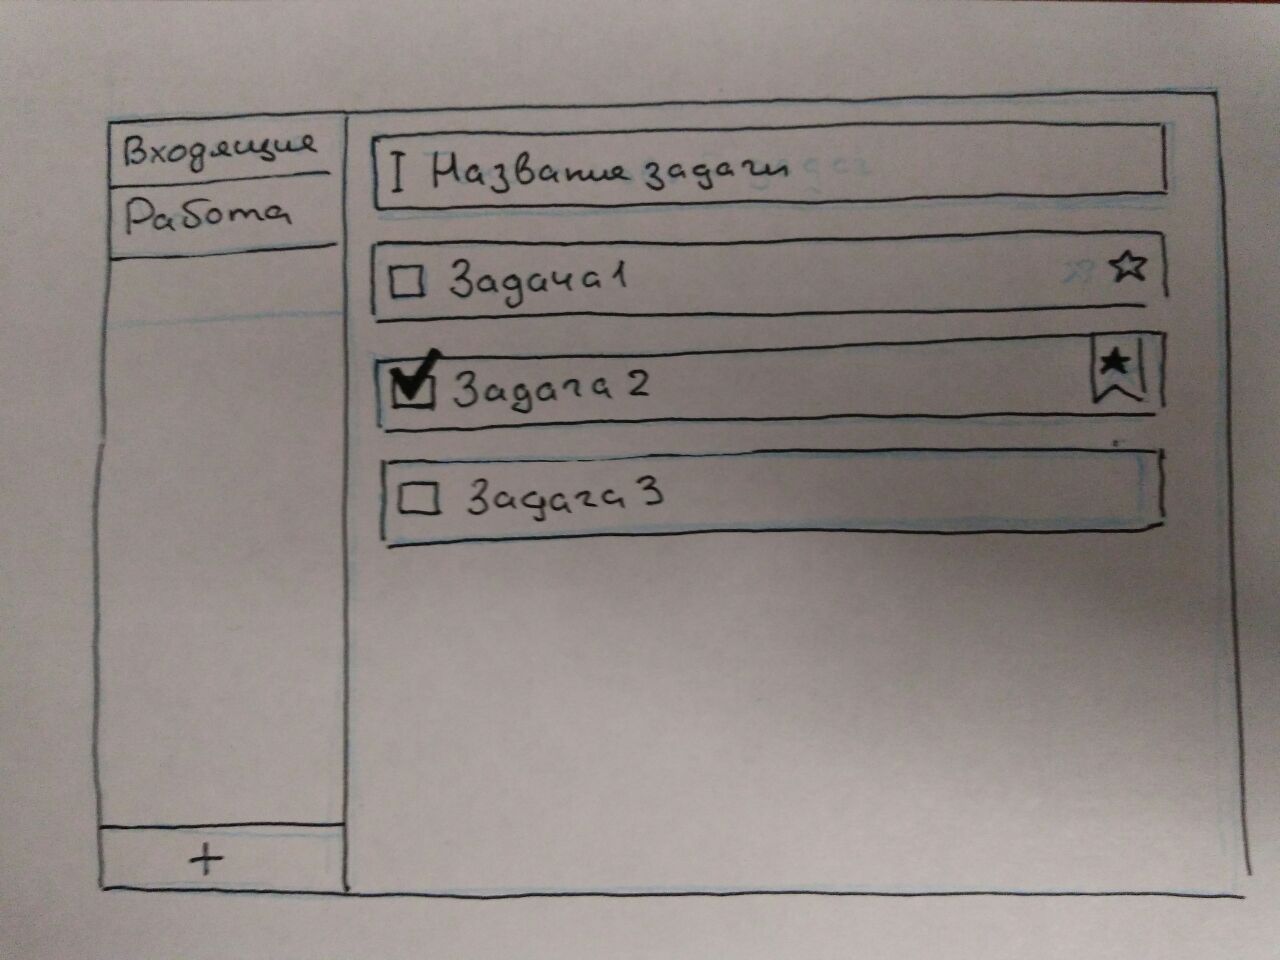 Входящие
Работа
Название задачи
Задача 1
Задача 2
Задача 3
+